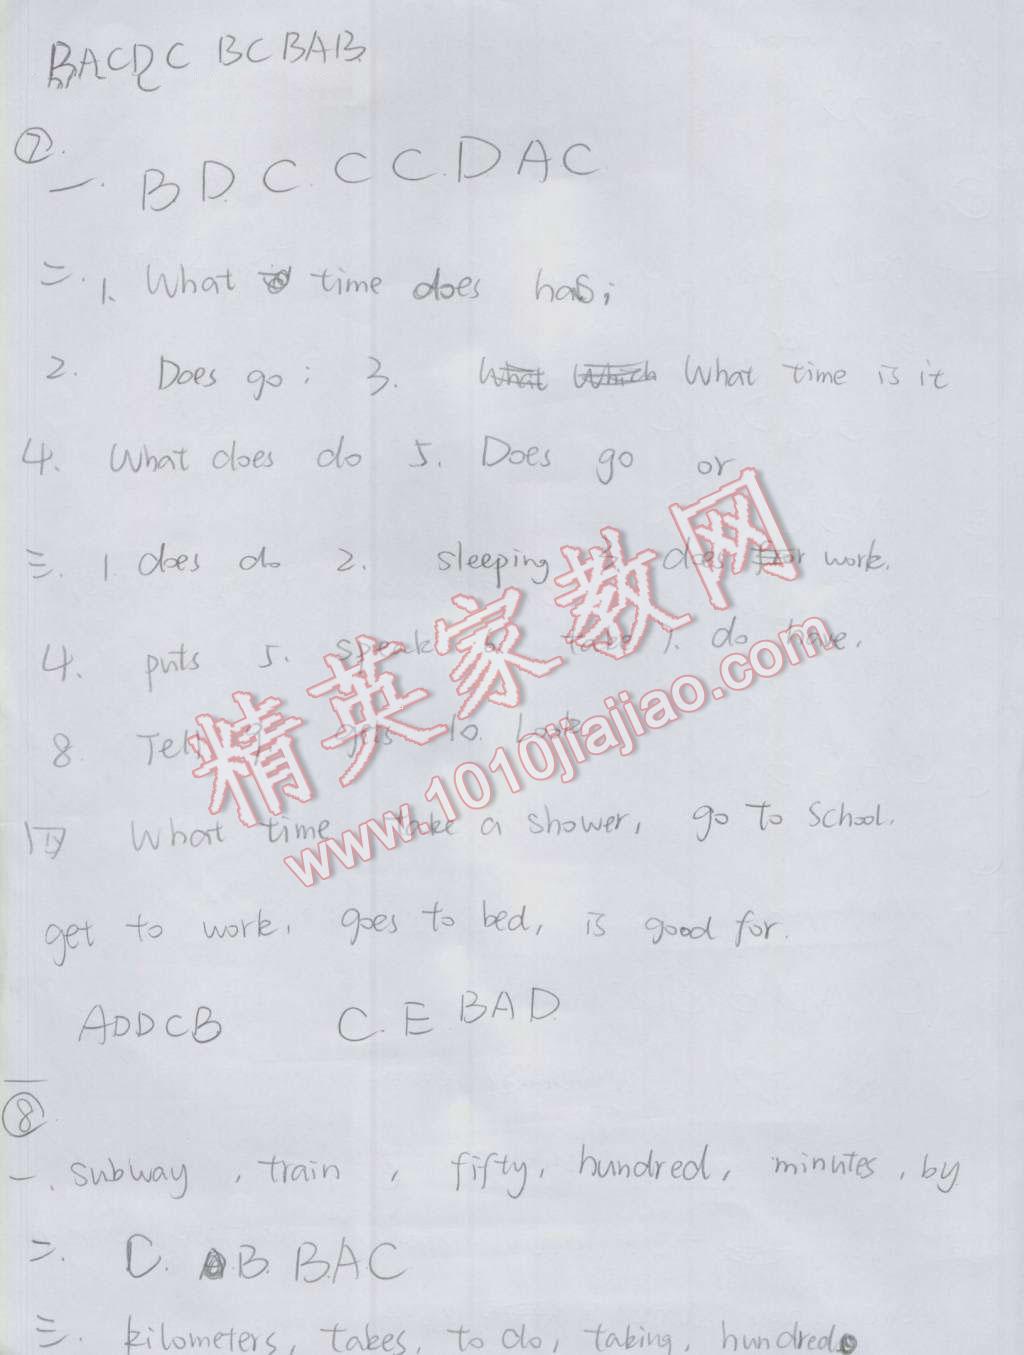 BACDC BCBAB
⑦.
一. B D. C. C C. D A C
二. 1. What time does has;
2. Does go; 3. What Which What time is it
4. What does do 5. Does go or
三. 1. does do 2. sleeping 3. does for work.
4. puts 5. speak 6. take 7. do have.
8. Tell 9. gets 10. Look
四 What time, take a shower, go to school.
get to work, goes to bed, is good for.
ADDCB C. E BAD.
⑧
一. subway, train, fifty, hundred, minutes, by
二. C. B. B.A.C
三. kilometers, takes, to do, taking, hundred.
精英家教网
www.1010jiajiao.com